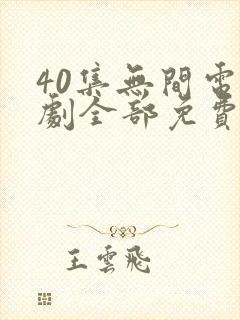 40集無間電
劇全部免費
王雲飛